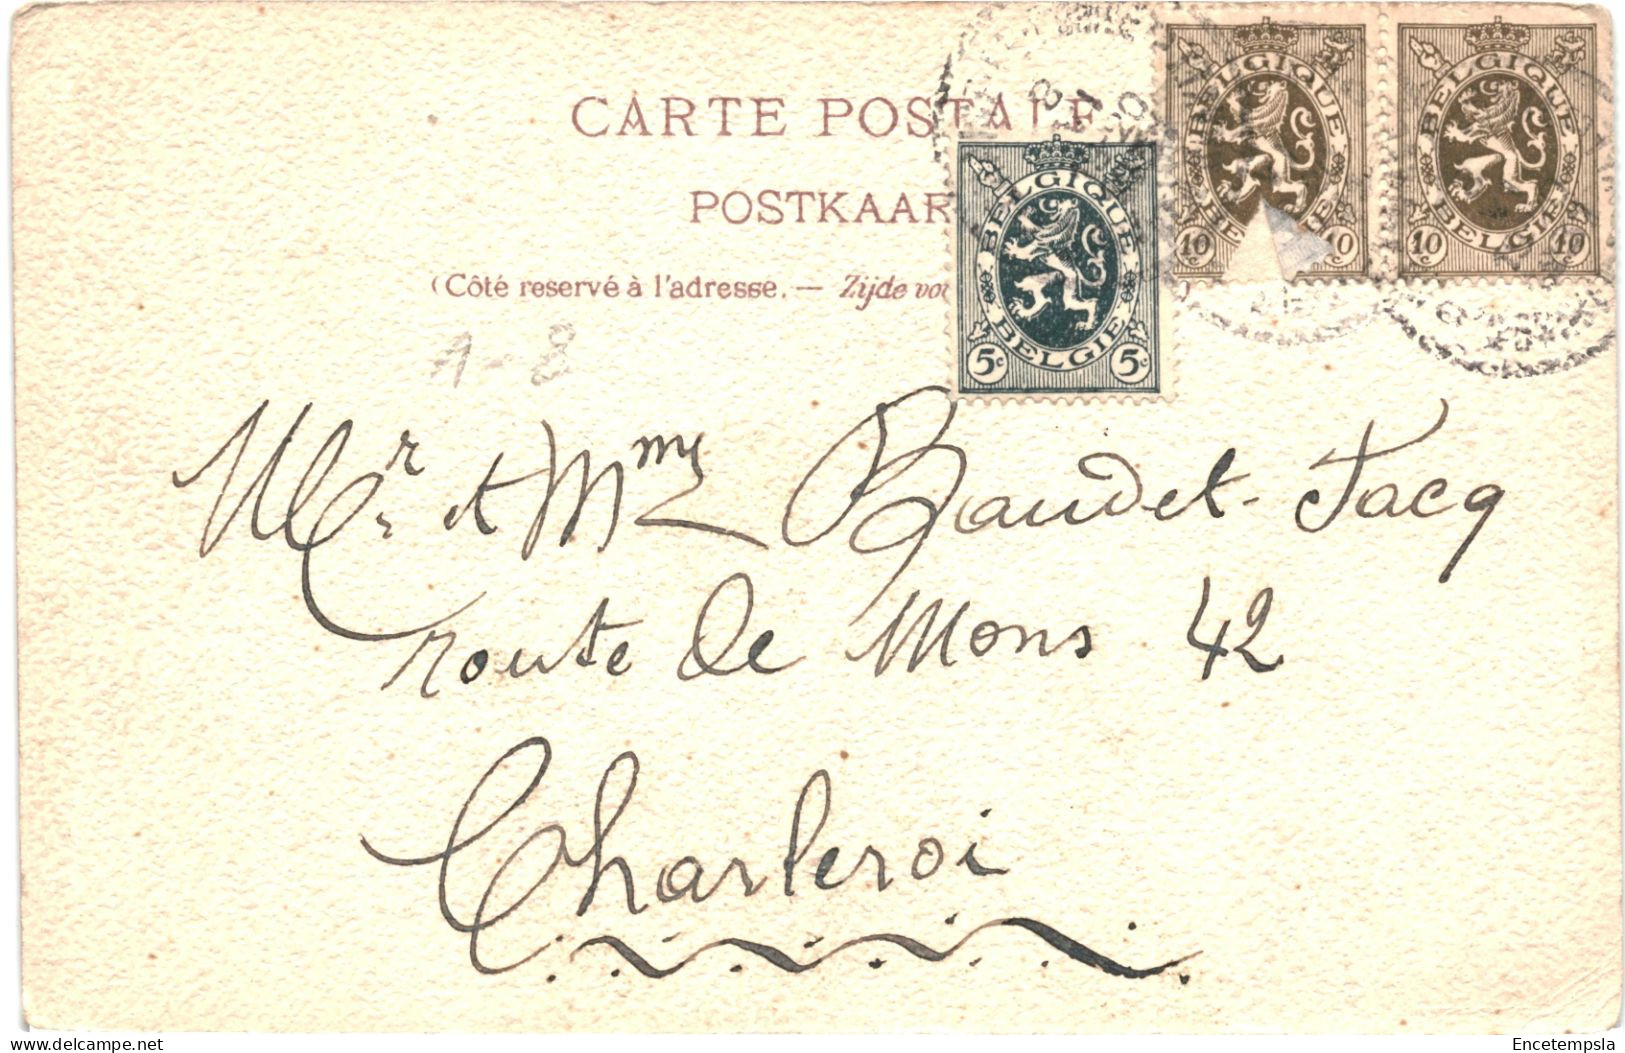 CARTE POSTALE
POSTKAAR
(Côté reservé à l'adresse. — Zijde voo
1-8
BELGIQUE BELGIE 5c 5c
BELGIQUE BELGIE 10c 10c
BELGIQUE BELGIE 10c 10c
Mr et Mme Baudet-Jacq
route de Mons 42
Charleroi
delcampe.net
Encetempsla